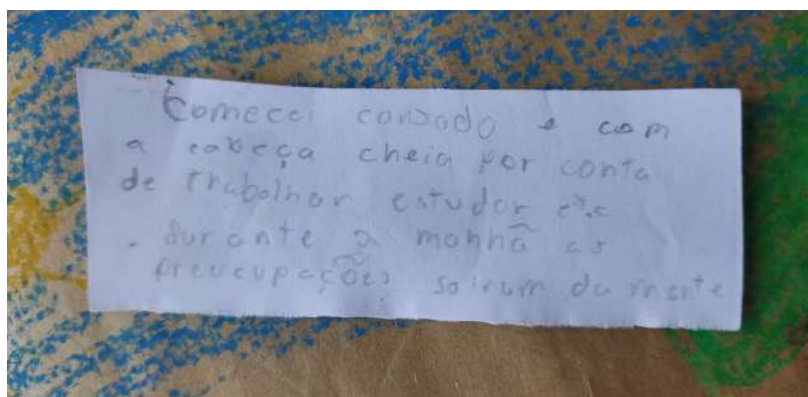 Comecei cansado e com
a cabeça cheia por conta
de trabalhar estudar etc
. durante a manhã as
preucupações sairam da mente